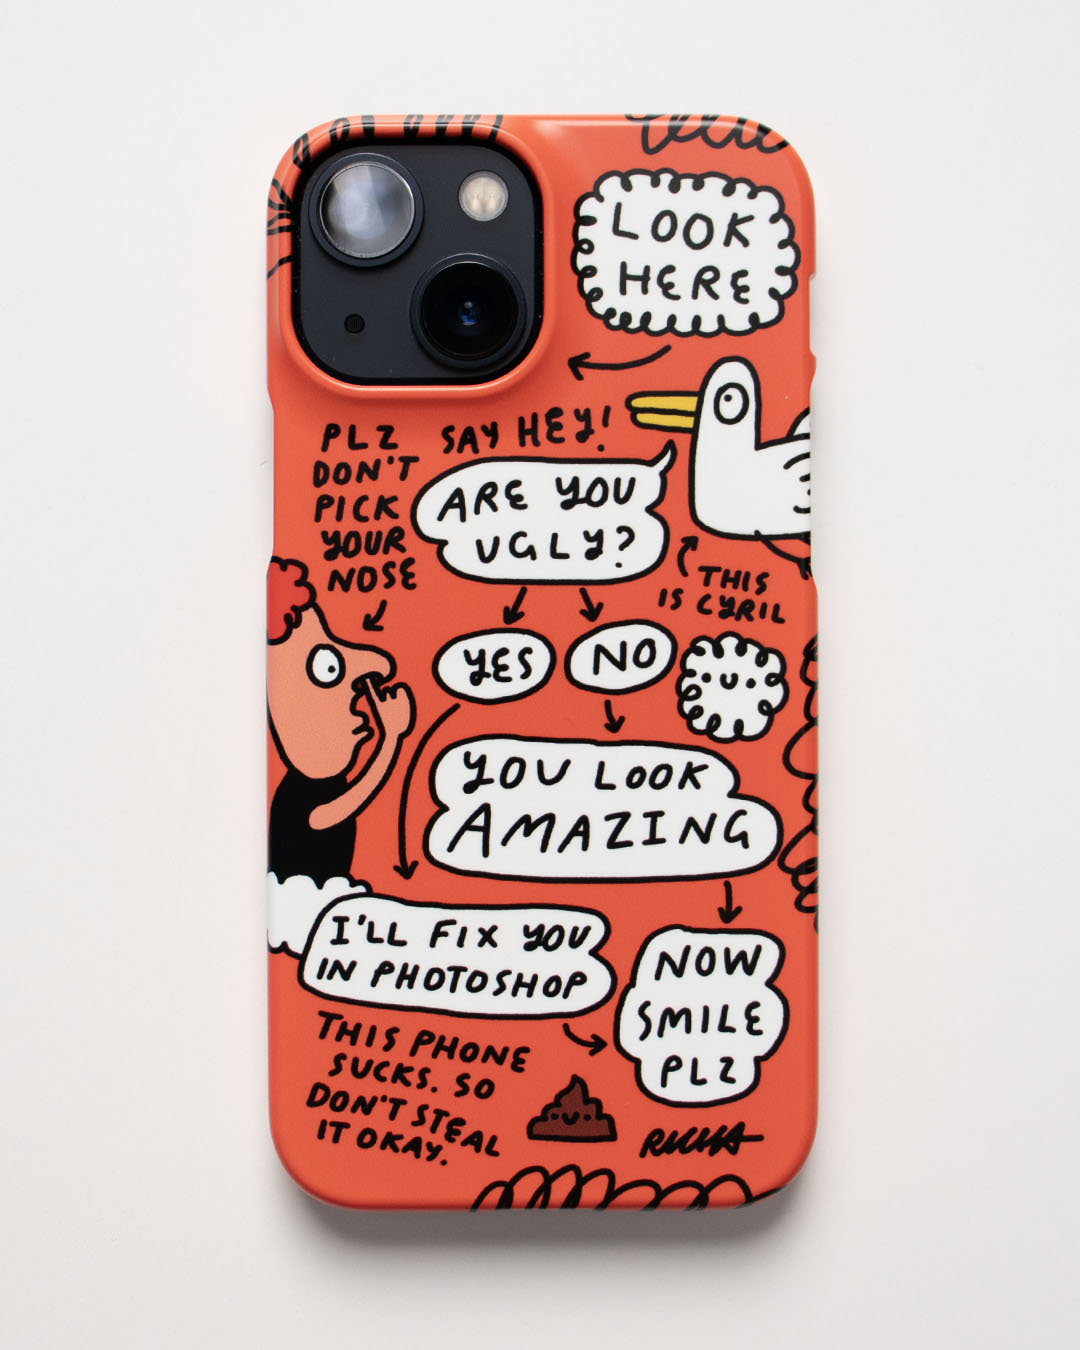 LOOK
HERE
SAY HEY!
PLZ
DON'T
PICK
YOUR
NOSE
ARE YOU
UGLY?
THIS
IS CYRIL
YES
NO
YOU LOOK
AMAZING
I'LL FIX YOU
IN PHOTOSHOP
NOW
SMILE
PLZ
THIS PHONE
SUCKS. SO
DON'T STEAL
IT OKAY.